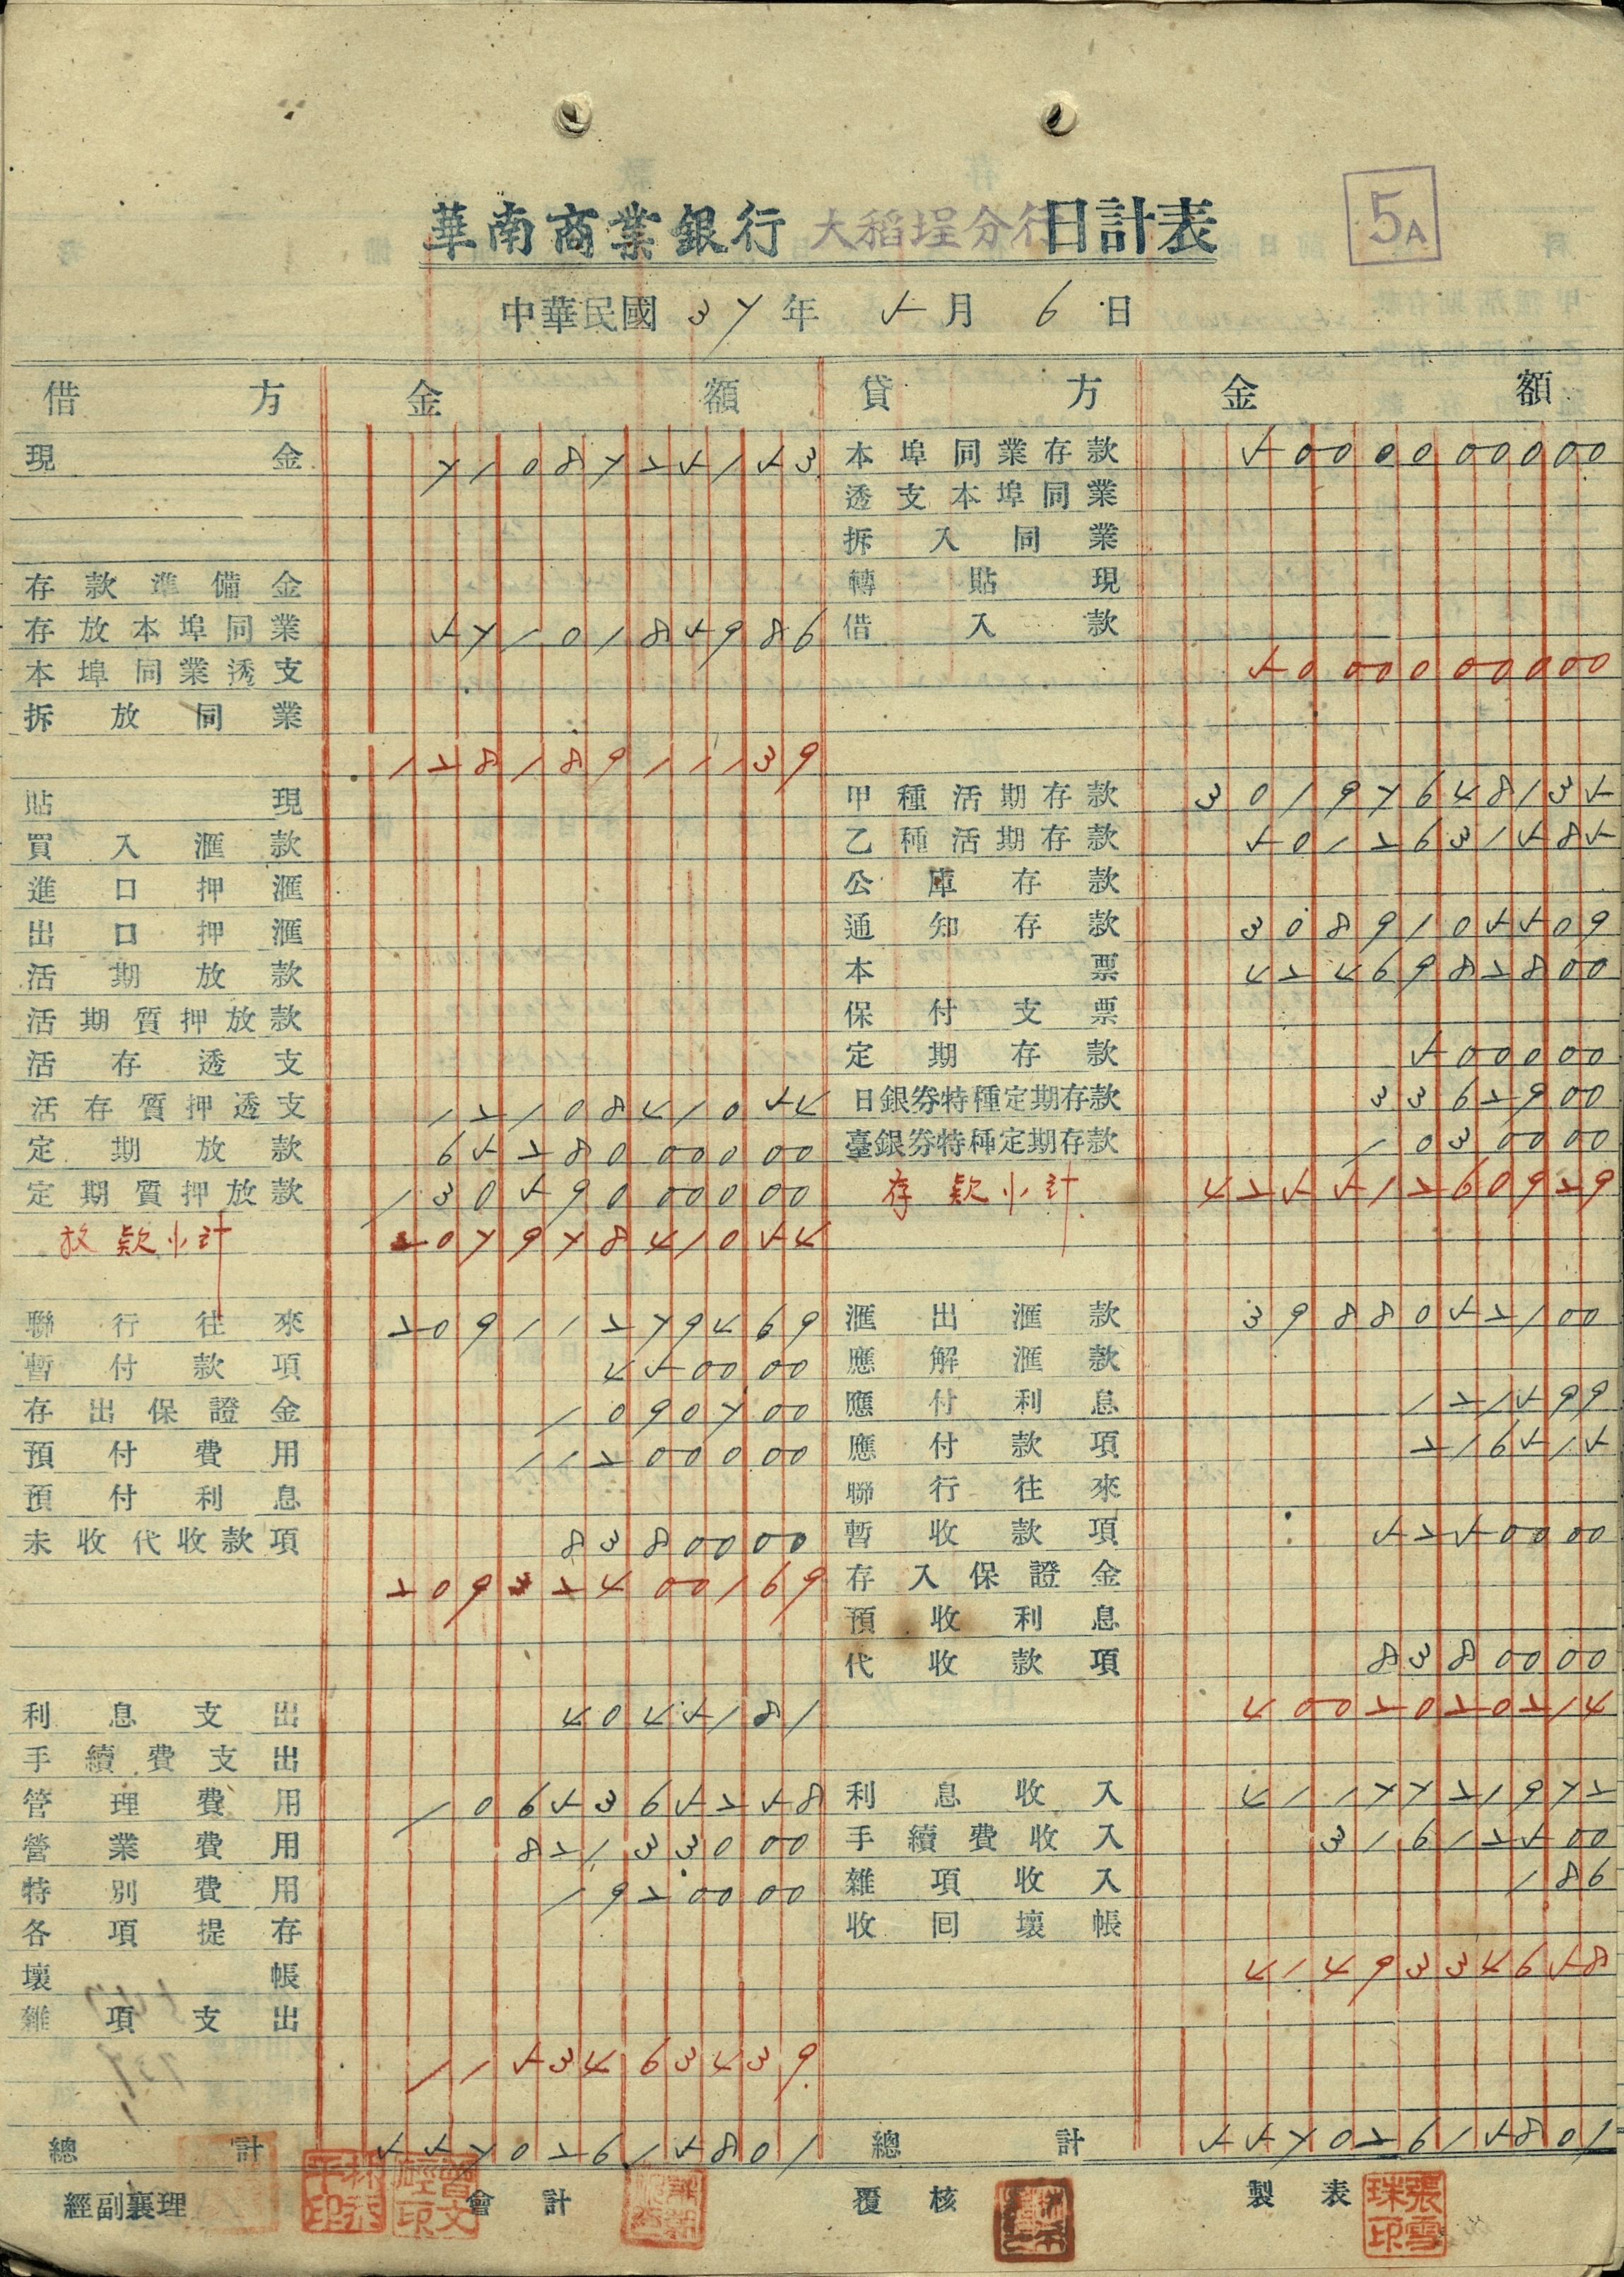 華南商業銀行 大稻埕分行 日計表
5A
中華民國 37 年 5 月 6 日
借方 金額 貸方 金額
現金 7108725153 本埠同業存款 5000000000
透支本埠同業
拆入同業
存款準備金 轉貼現
存放本埠同業 5710185986 借入款
本埠同業透支 5000000000
拆放同業
12818911139
貼現 甲種活期存款 30197648135
買入滙款 乙種活期存款 5012631585
進口押滙 公庫存款
出口押滙 通知存款 3089105509
活期放款 本票 4246982800
活期質押放款 保付支票
活存透支 定期存款 500000
活存質押透支 1210841054 日銀券特種定期存款 3362900
定期放款 6528000000 臺銀券特種定期存款 1030000
定期質押放款 13059000000 存款小計 42551260929
放款小計 20797841054
聯行往來 20911279469 滙出滙款 3988052100
暫付款項 450000 應解滙款
存出保證金 1090700 應付利息 121599
預付費用 11200000 應付款項 216515
預付利息 聯行往來
未收代收款項 8380000 暫收款項 5250000
20932400169 存入保證金
預收利息
代收款項 8380000
利息支出 4045181 4002020214
手續費支出
管理費用 1065365258 利息收入 4117721972
營業費用 82133000 手續費收入 31612500
特別費用 1920000 雜項收入 186
各項提存 收回壞帳
壞帳 4149334658
雜項支出
1153463439
總計 55702615801 總計 55702615801
經副襄理 會計 覆核 製表 張雪珠印